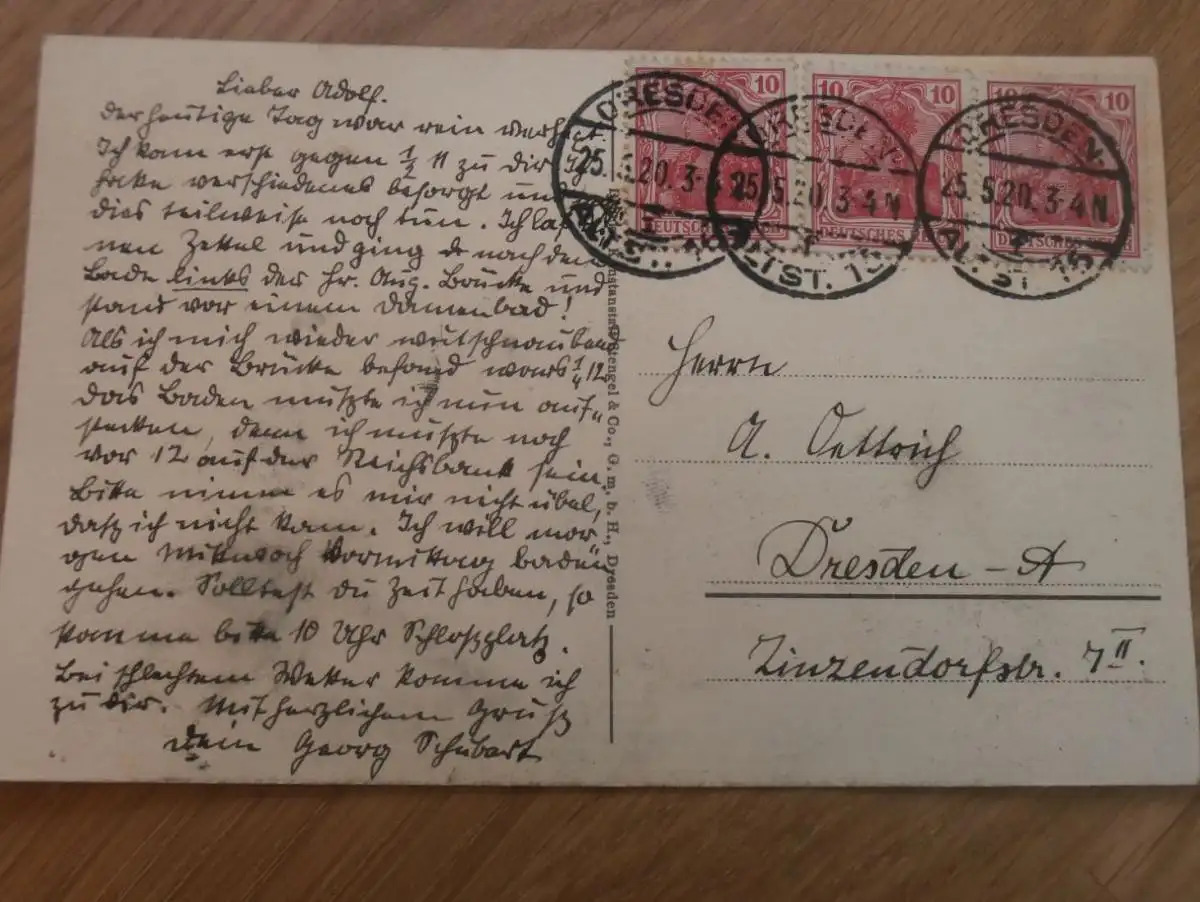 Lieber Adolf.
der heutige Tag war rein verh
Ich kam erst gegen ½ 11 zu dir. Ich
hatte verschiedenes besorgt und
dies teilweise noch tun. Ich las
nen Zettel und ging nach dem
Bade links der Fr. Aug. Brücke und
stand vor einem Damenbad!
Als ich mich wieder wutschnaubend
auf der Brücke befand wars ¼ 12
das Baden mußte ich nun auf-
stecken, denn ich mußte noch
vor 12 auf der Reichsbank sein.
Bitte nimm es mir nicht übel,
daß ich nicht kam. Ich will mor-
gen Mittwoch Vormittag baden
gehen. Solltest du Zeit haben, so
komme bitte 10 Uhr Schloßplatz.
Bei schlechtem Wetter komme ich
zu dir. Mit herzlichem Gruß
dein Georg Schubart
Stengel & Co., G. m. b. H., Dresden
10
10 10
10 10
DEUTSCHES
DEUTSCHES
DRESDEN
25. 20. 3-4
ALTST.
DRESDEN
25.5.20. 3-4N
ALTST. 15
DRESDEN
25.5.20. 3-4N
ALTST. 15
Herrn
A. Oettrich
Dresden-A
Zinzendorfstr. 7 II.